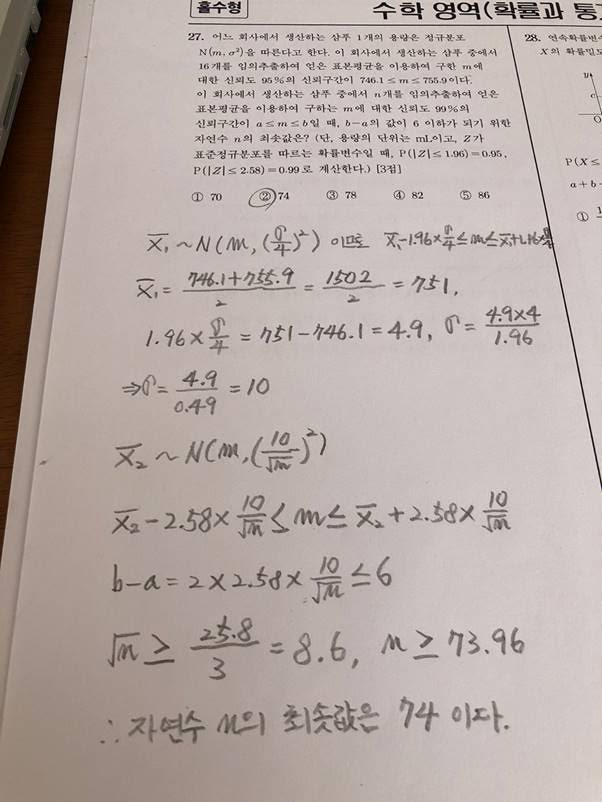 홀수형
수학 영역(확률과 통
27. 어느 회사에서 생산하는 샴푸 1개의 용량은 정규분포
N(m, σ²)을 따른다고 한다. 이 회사에서 생산하는 샴푸 중에서
16개를 임의추출하여 얻은 표본평균을 이용하여 구한 m에
대한 신뢰도 95%의 신뢰구간이 746.1 ≤ m ≤ 755.9이다.
이 회사에서 생산하는 샴푸 중에서 n개를 임의추출하여 얻은
표본평균을 이용하여 구하는 m에 대한 신뢰도 99%의
신뢰구간이 a ≤ m ≤ b일 때, b-a의 값이 6 이하가 되기 위한
자연수 n의 최솟값은? (단, 용량의 단위는 mL이고, Z가
표준정규분포를 따르는 확률변수일 때, P(|Z| ≤ 1.96) = 0.95,
P(|Z| ≤ 2.58) = 0.99로 계산한다.) [3점]
① 70 ② 74 ③ 78 ④ 82 ⑤ 86
X̄₁ ~ N(m, (σ/4)²) 이므로 X̄₁-1.96×σ/4 ≤ m ≤ X̄₁+1.96×σ/4
X̄₁ = (746.1+755.9)/2 = 1502/2 = 751,
1.96 × σ/4 = 751-746.1 = 4.9, σ = (4.9×4)/1.96
⇒ σ = 4.9/0.49 = 10
X̄₂ ~ N(m, (10/√n)²)
X̄₂ - 2.58 × 10/√n ≤ m ≤ X̄₂ + 2.58 × 10/√n
b-a = 2 × 2.58 × 10/√n ≤ 6
√n ≥ 25.8/3 = 8.6, n ≥ 73.96
∴ 자연수 n의 최솟값은 74 이다.
28. 연속확률변
X의 확률밀도
y
c
O
P(X ≤
a+b-
①